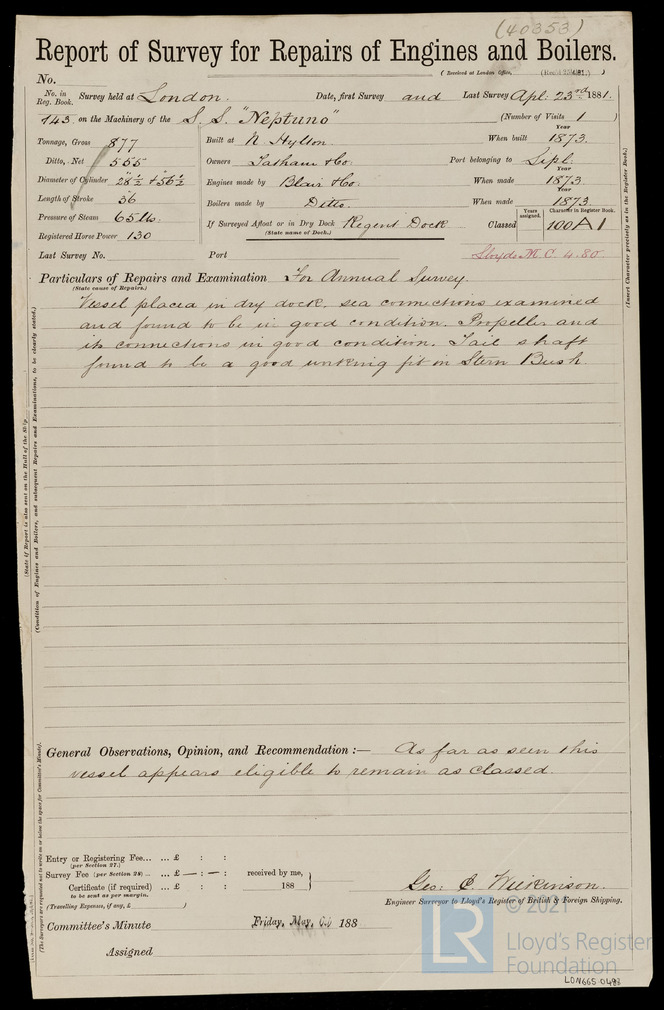 (40353)
Report of Survey for Repairs of Engines and Boilers.
No. (Received at London Office,
No. in Reg. Book. Survey held at London. Date, first Survey and Last Survey Apl. 23rd 1881.
143 on the Machinery of the S. S. "Neptuno" (Number of Visits 1
Tonnage, Gross 877 Built at N. Hylton. When built Year 1873.
Ditto, Net 555 Owners Tatham & Co. Port belonging to Lipl.
Diameter of Cylinder 28½" & 56½" Engines made by Blair & Co. When made Year 1873
Length of Stroke 36" Boilers made by Ditto. When made Year 1873
Pressure of Steam 65 lb. If Surveyed Afloat or in Dry Dock Regent Dock Classed Years assigned. Character in Register Book. 100 A 1
(State name of Dock.)
Registered Horse Power 130
Last Survey No. Port Lloyds M. C. 4.80.
Particulars of Repairs and Examination For Annual Survey.
(State cause of Repairs.)
Vessel placed in dry dock, sea connections examined
and found to be in good condition. Propeller and
its connections in good condition. Tail shaft
found to be a good working fit in Stern Bush.
(Insert Character precisely as in the Register Book.)
(State if Report is also sent on the Hull of the Ship
(Condition of Engines and Boilers, and subsequent Repairs and Examinations, to be clearly stated.)
General Observations, Opinion, and Recommendation :— As far as seen this
vessel appears eligible to remain as classed.
(The Surveyors are requested not to write on or below the space for Committee's Minute).
Entry or Registering Fee... ... £ : :
(per Section 27.)
Survey Fee (per Section 28) ... ... £ — : — : received by me,
Certificate (if required) ... £ : : 188
to be sent as per margin.
(Travelling Expenses, if any, £ )
Geo: C. Wilkinson.
Engineer Surveyor to Lloyd's Register of British & Foreign Shipping.
Committee's Minute Friday, May, 188
Assigned
© 2021
LR
Lloyd's Register
Foundation
LON665 0493